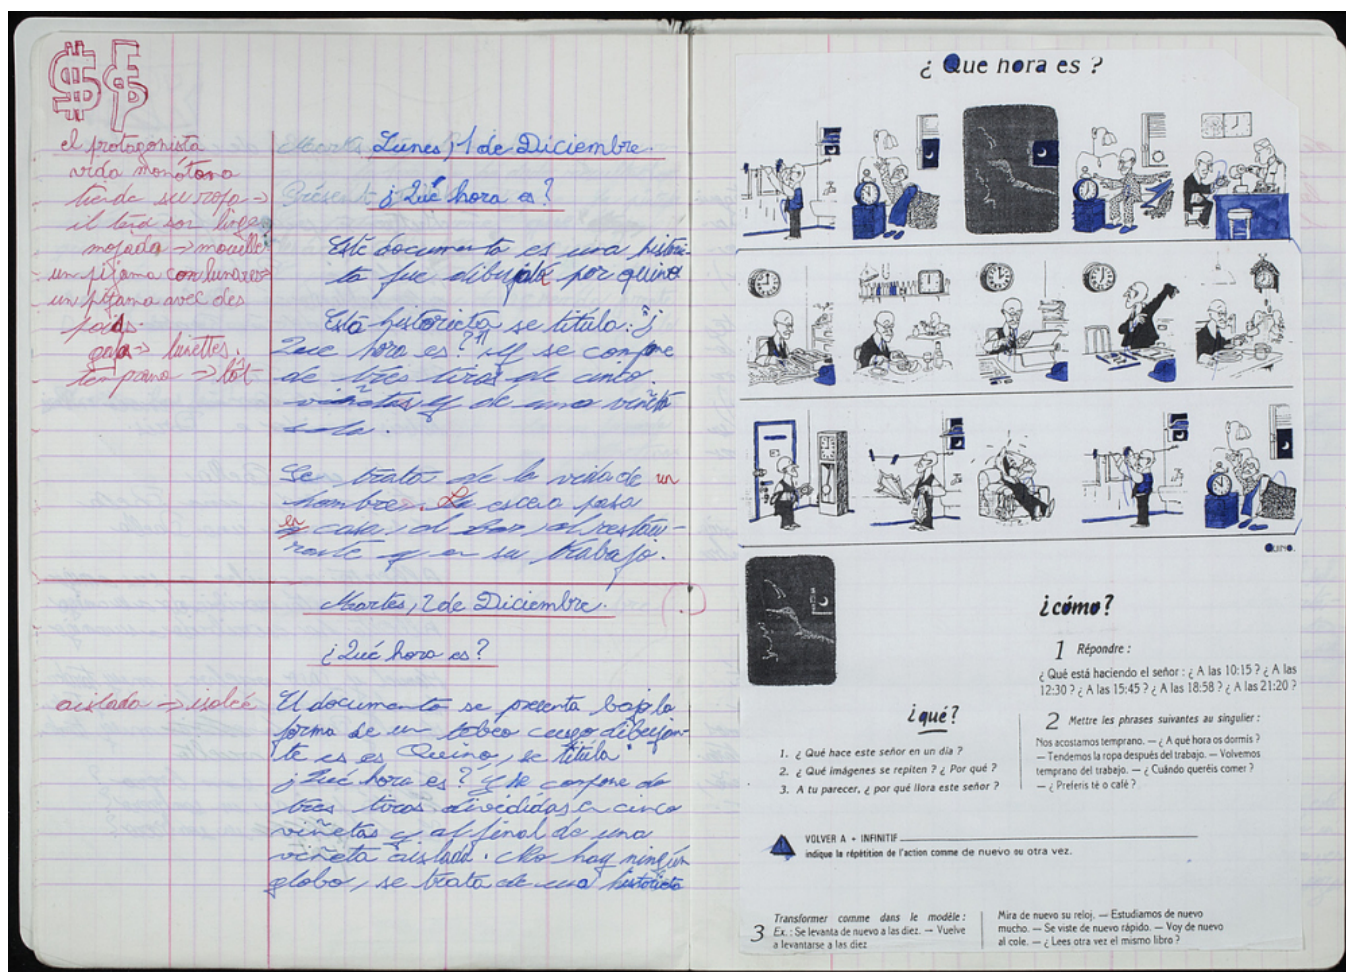 el protagonista
vida monótona
tiende su ropa →
il tend son linge
mojada → mouillé
un pijama con lunares
un pijama avec des
pois.
gafa → lunettes.
temprano → tôt
Lunes, 1 de Diciembre.
¿Qué hora es?
Este documento es una histori-
ta fue dibujada por quino
Esta historieta se titula: "¿
Que hora es?" y se compone
de tres tiras de cinco
viñetas y de una viñeta
sola.
Se trata de la vida de un
hombre. La escena pasa
en casa, el bar, el restau-
rante y en su trabajo.
Martes, 2 de Diciembre.
¿Qué hora es?
aislada → isolée
El documento se presenta bajo la
forma de un tebeo cuyo dibujan-
te es es Quino, se titula "
¿Qué hora es? Y se compone de
tres tiras divididas en cinco
viñetas y al final de una
viñeta aislada. No hay ningún
globo, se trata de una historieta
¿ Que hora es ?
QUINO.
¿cómo?
1 Répondre :
¿ Qué está haciendo el señor : ¿ A las 10:15 ? ¿ A las
12:30 ? ¿ A las 15:45 ? ¿ A las 18:58 ? ¿ A las 21:20 ?
¿qué?
1. ¿ Qué hace este señor en un día ?
2. ¿ Qué imágenes se repiten ? ¿ Por qué ?
3. A tu parecer, ¿ por qué llora este señor ?
2 Mettre les phrases suivantes au singulier :
Nos acostamos temprano. — ¿ A qué hora os dormís ?
— Tendemos la ropa después del trabajo. — Volvemos
temprano del trabajo. — ¿ Cuándo queréis comer ?
— ¿ Preferís té o café ?
VOLVER A + INFINITIF
indique la répétition de l'action comme de nuevo ou otra vez.
3 Transformer comme dans le modèle :
Ex. : Se levanta de nuevo a las diez. — Vuelve
a levantarse a las diez
Mira de nuevo su reloj. — Estudiamos de nuevo
mucho. — Se viste de nuevo rápido. — Voy de nuevo
al cole. — ¿ Lees otra vez el mismo libro ?